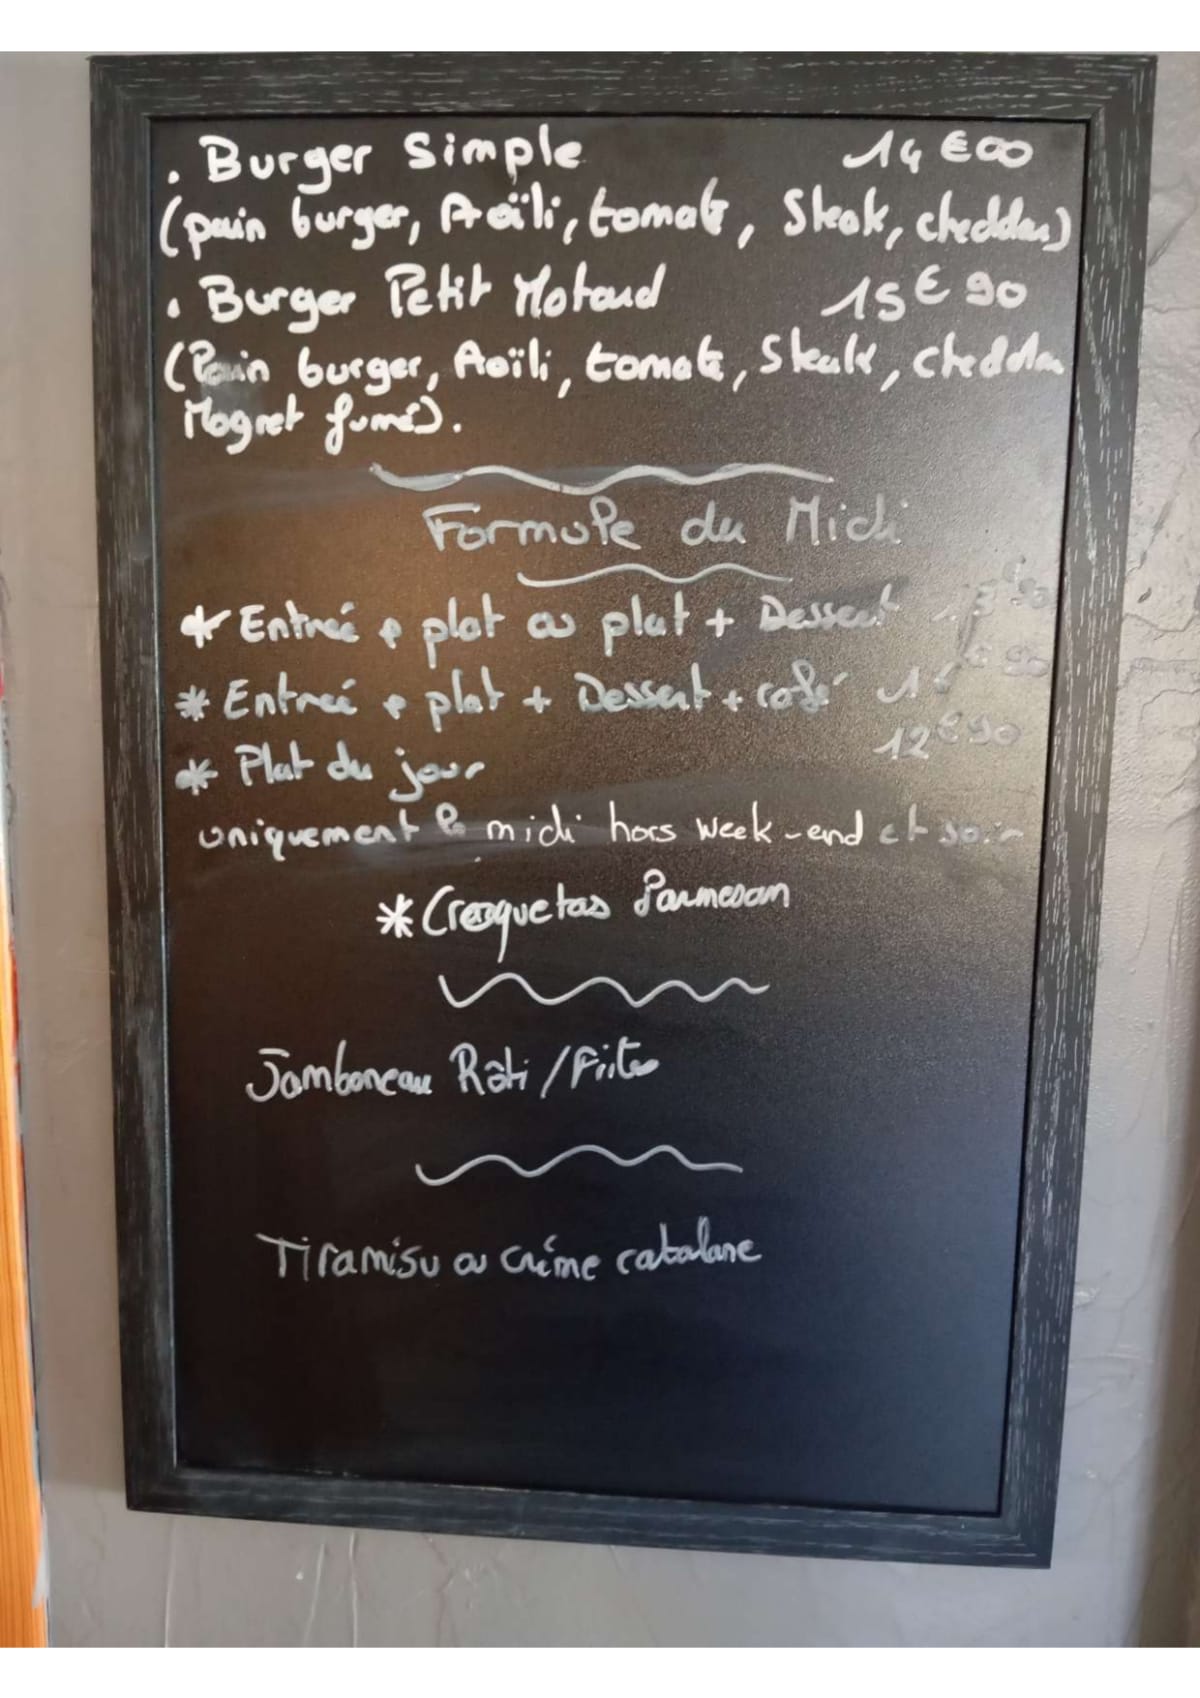 . Burger Simple 14€00
(pain burger, Aoïli, tomate, Steak, cheddar)
. Burger Petit Motard 15€90
(Pain burger, Aoïli, tomate, Steak, cheddar
Magret fumé).
Formule du Midi
* Entrée + plat ou plat + Dessert
* Entrée + plat + Dessert + café
* Plat du jour 12€90
uniquement le midi hors week-end et soir
* Croquetas Parmesan
Jamboneau Rôti / Frites
Tiramisu ou crème catalane